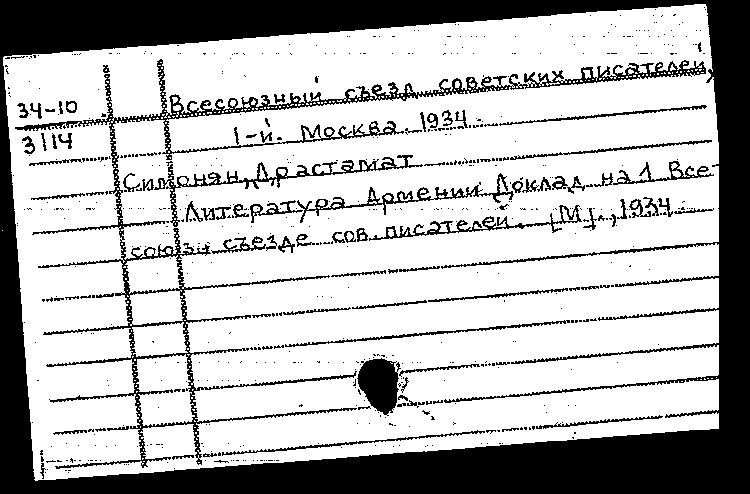 34-10
3114
Всесоюзный съезд советских писателей,
1-й. Москва. 1934.
Симонян, Драстамат
Литература Армении Доклад на 1 Все-
союзн съезде сов. писателей. [М]., 1934.